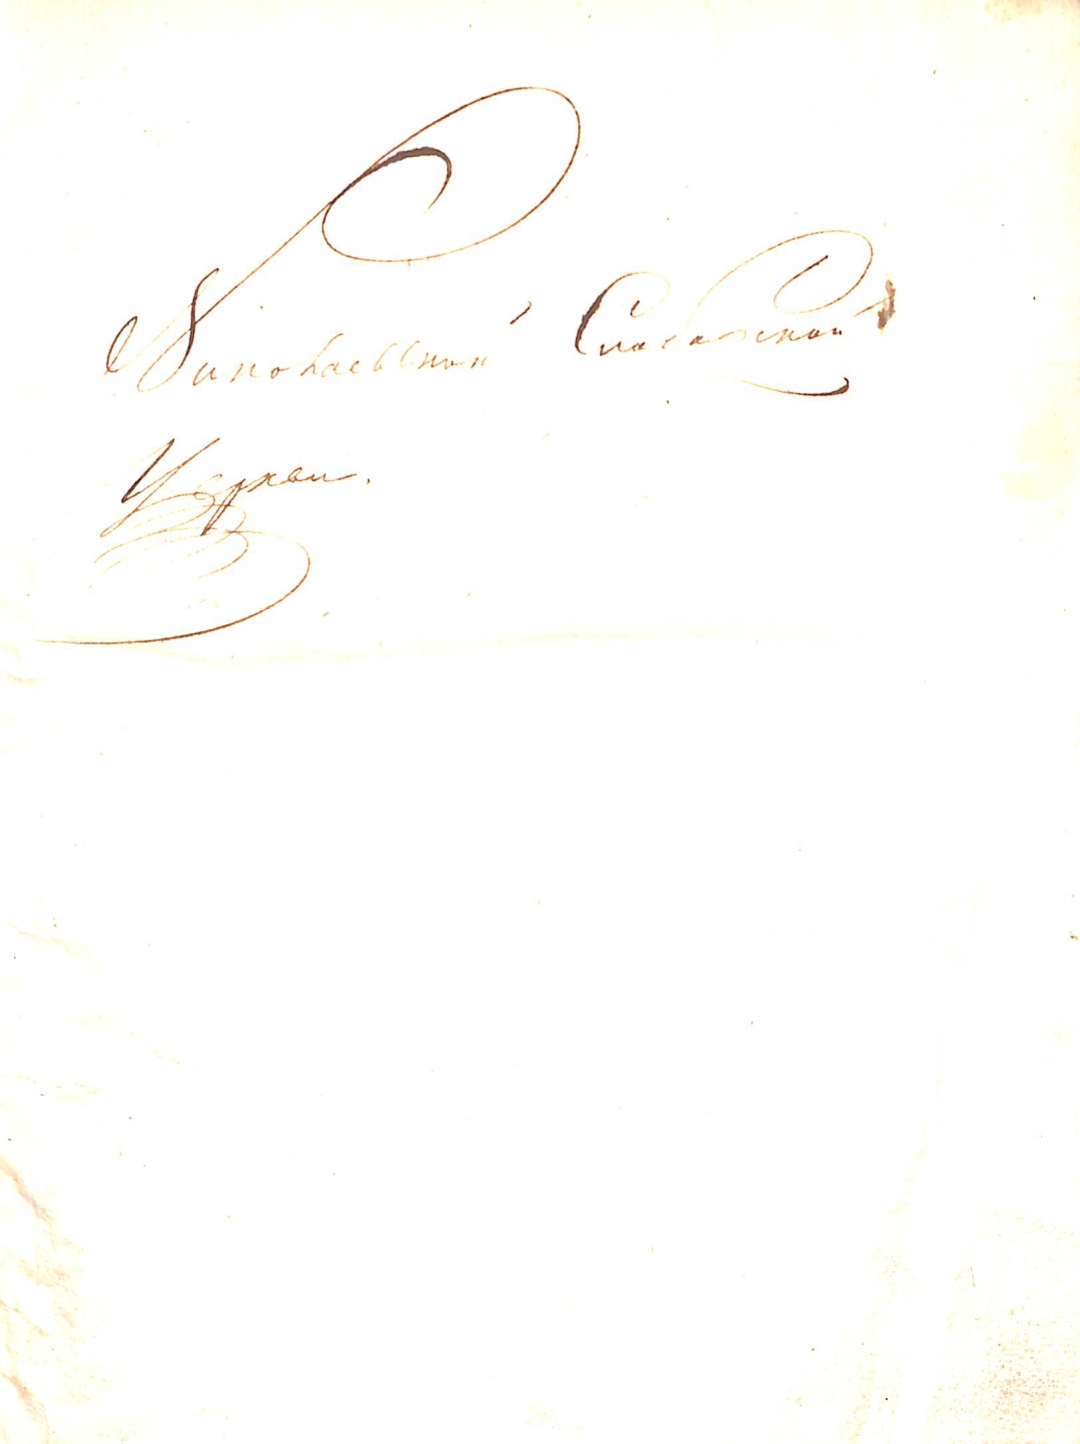 Николаевской Спасской
Церкви.